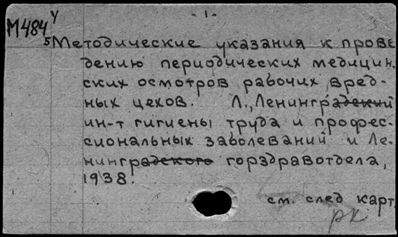 - 1 -
М484 У
5 Методические указания к прове
дению периодических медицин.
ских осмотров рабочих вред-
ных цехов. Л., Ленинградский
ин-т гигиены труда и профес-
сиональных заболеваний и Ле-
нинградского горздравотдела,
1938.
см. след карт.
рк